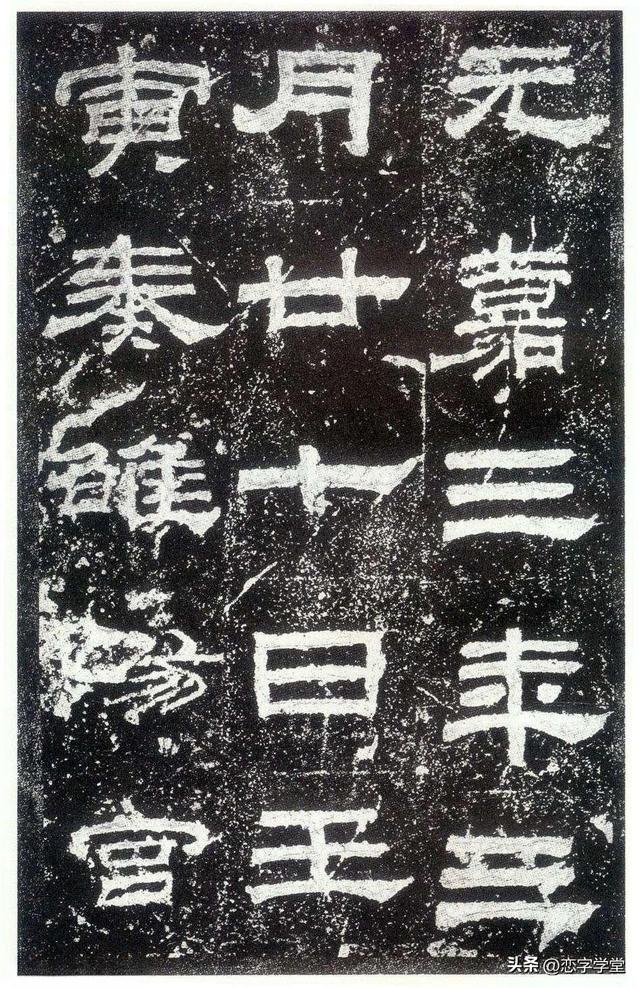 元嘉三年三
月廿七日壬
寅奏雒陽宮
头条 @恋字学堂